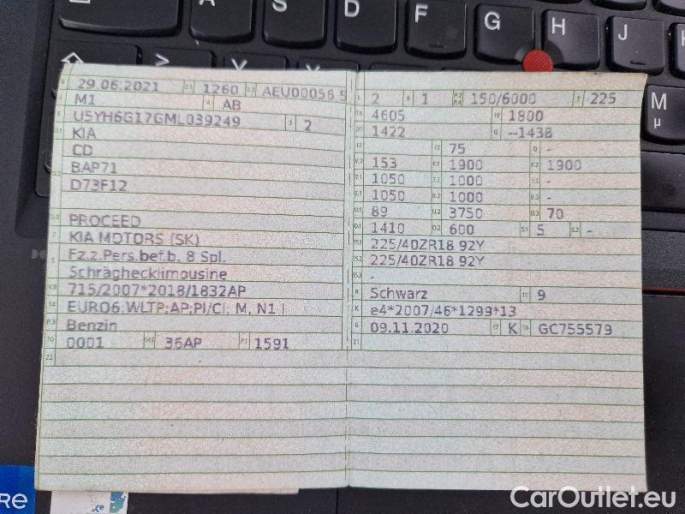 29.06.2021 1260 AEU00056 5
M1 AB
U5YH6G17GML039249 2
KIA
CD
BAP71
D73F12
PROCEED
KIA MOTORS (SK)
Fz.z.Pers.bef.b. 8 Spl.
Schräghecklimousine
715/2007*2018/1832AP
EURO6;WLTP;AP;PI/CI; M, N1 I
Benzin
0001 36AP 1591
2 1 150/6000 225
4605 1800
1422 --1438
75 -
153 1900 1900
1050 1000 -
1050 1000 -
89 3750 70
1410 600 5 -
225/40ZR18 92Y
225/40ZR18 92Y
-
Schwarz 9
e4*2007/46*1299*13
09.11.2020 K GC755579
D
F
G
H
J
M
µ
CarOutlet.eu